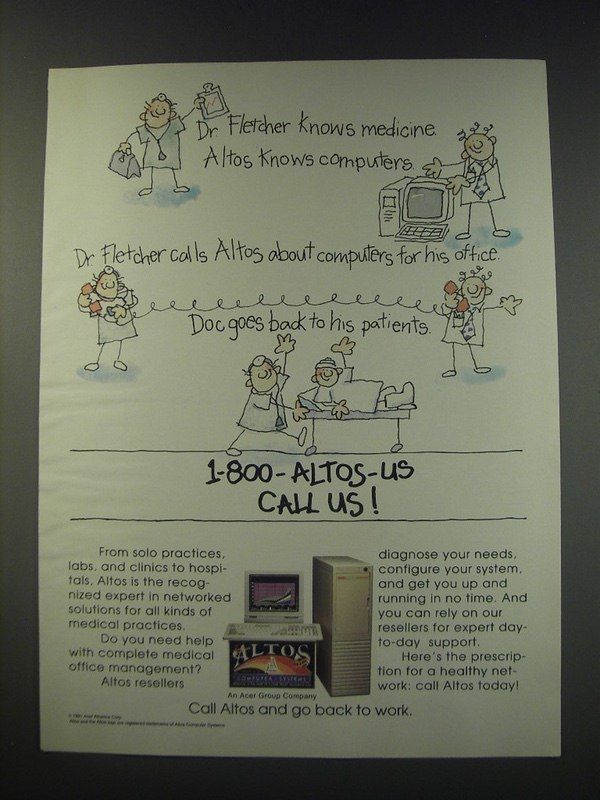 Dr Fletcher knows medicine.
Altos knows computers.
Dr Fletcher calls Altos about computers for his office.
Doc goes back to his patients.
1-800-ALTOS-US
CALL US!
From solo practices,
labs, and clinics to hospi-
tals, Altos is the recog-
nized expert in networked
solutions for all kinds of
medical practices.
Do you need help
with complete medical
office management?
Altos resellers
ALTOS
COMPUTER SYSTEMS
An Acer Group Company
diagnose your needs,
configure your system,
and get you up and
running in no time. And
you can rely on our
resellers for expert day-
to-day support.
Here's the prescrip-
tion for a healthy net-
work: call Altos today!
Call Altos and go back to work.
© 1991 Acer America Corp.
Altos and the Altos logo are registered trademarks of Altos Computer Systems